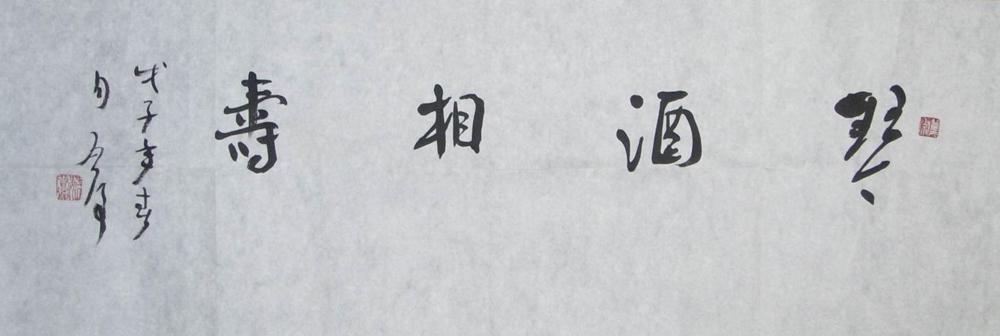 琴酒相壽
戊子年春